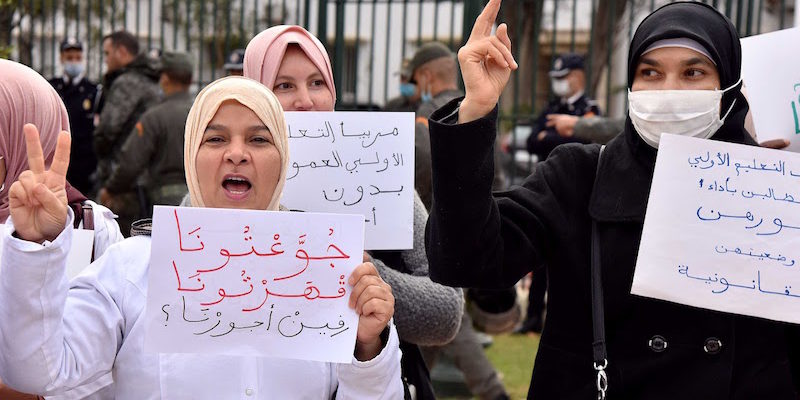 جُوَّعْتُونَا
قْهَرْتُونَا
فِيْنْ أجورْنَا ؟
مربيا التعل
الأولي العمو
بدون
أ
التعليم الأولي
طالبن بأداء أ
ورهن
وضعيتهن
قانونية